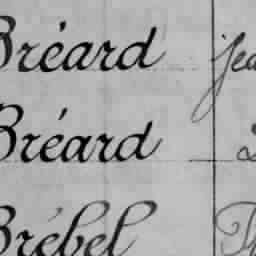 Bréard
Bréard
Brébel